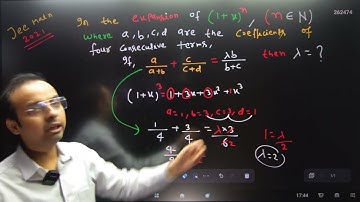 Jee main
2021
In the expansion of (1+x)ⁿ, (n ∈ N)
where a, b, c, d are the coefficients of
four consecutive terms,
If, a/(a+b) + c/(c+d) = λb/(b+c) then λ = ?
(1+x)³ = 1 + 3x + 3x² + 1x³
a = 1, b = 3, c = 3, d = 1
1/4 + 3/4 = λ×3/6 2
4/
1 = λ/2
λ = 2
262474
17:44